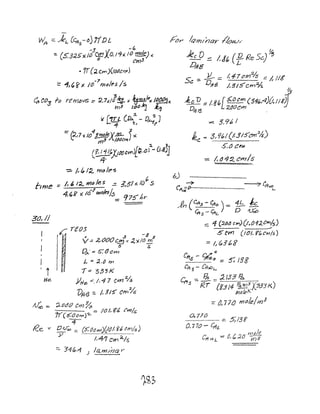 W_A = k_L (C_As - 0) π D L
= (5.325 x 10^-5 cm/s)(0.19 x 10^-6 mole/cm³) x
· π (2cm)(100cm)
= 4.68 x 10^-7 moles/s
CaCO3 to remove = 2.7x10³ kg/m³ x kgmole/100 kg 1000g/kg
x [πL/4 (D_2² - D_1²)]
= (2.7 x 10^4 gmole/m³ · m³/(100cm)³) x
[3.1416/4 (100cm)(2.0² - 1.8²)]
= 1.612 moles
time = 1.612 moles / 4.68 x 10^-7 moles/s = 3.51 x 10^6 s
= 975 hr
30.11
TEOS
V̇ = 2.000 cm³/s = 2 x 10^-3 m³/s
D = 5.0 cm
L = 2.0 m
T = 333 K
ν_He = 1.47 cm²/s
D_AB = 1.315 cm²/s
He
v∞ = 2.000 cm³/s / π(5.0cm)²/4 = 101.86 cm/s
Re = Dv∞/ν = (5.0cm)(101.86 cm/s) / 1.47 cm²/s
= 346.4 ; laminar
For laminar flow:
k_c D / D_AB = 1.86 (D/L Re Sc)^1/3
Sc = ν/D_AB = 1.47 cm²/s / 1.315 cm²/s = 1.118
k_c D / D_AB = 1.86 [5.0 cm/200cm (346.4)(1.118)]^1/3
= 3.961
k_c = 3.961 (1.315 cm²/s) / 5.0 cm
= 1.042 cm/s
b)
ln (C_As - C_Ao / C_As - C_AL) = 4L/D k_c/v∞
= 4 (200 cm)(1.042 cm/s) / 5 cm (101.86 cm/s)
= 1.6368
C_As - C_Ao / C_As - C_AL = 5.138
C_As = P_A/RT = 2133 Pa / (8.314 Pa·m³/mole·K)(333K)
= 0.770 mole/m³
0.770 / 0.770 - C_AL = 5.138
C_AL = 0.620 mole/m³
783